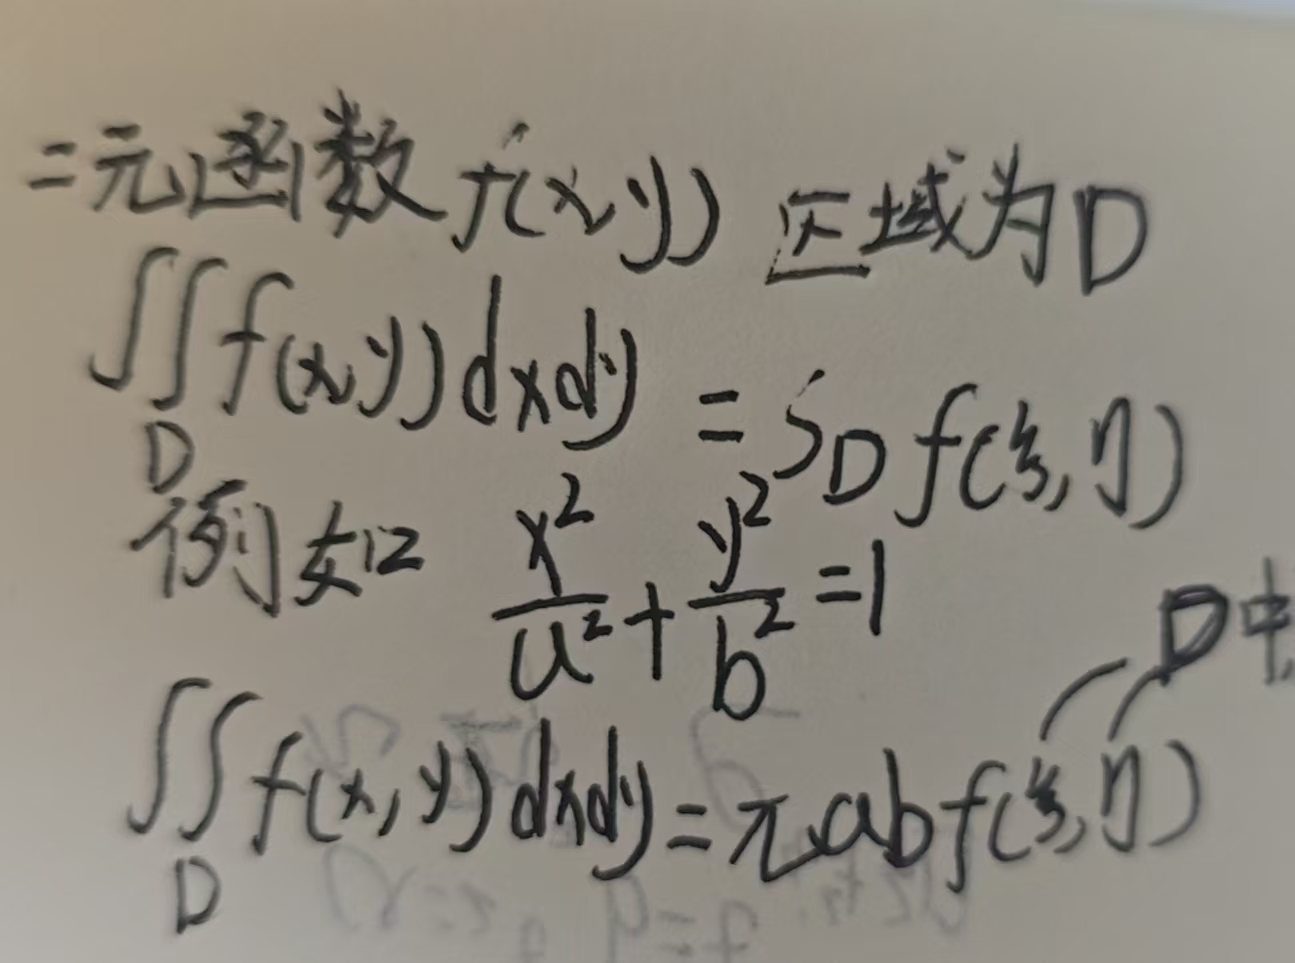 二元函数 f(x,y) 区域为D
∬_D f(x,y)dxdy = S_D f(ξ,η)
例如 x²/a² + y²/b² = 1
D中
∬_D f(x,y)dxdy = πab f(ξ,η)